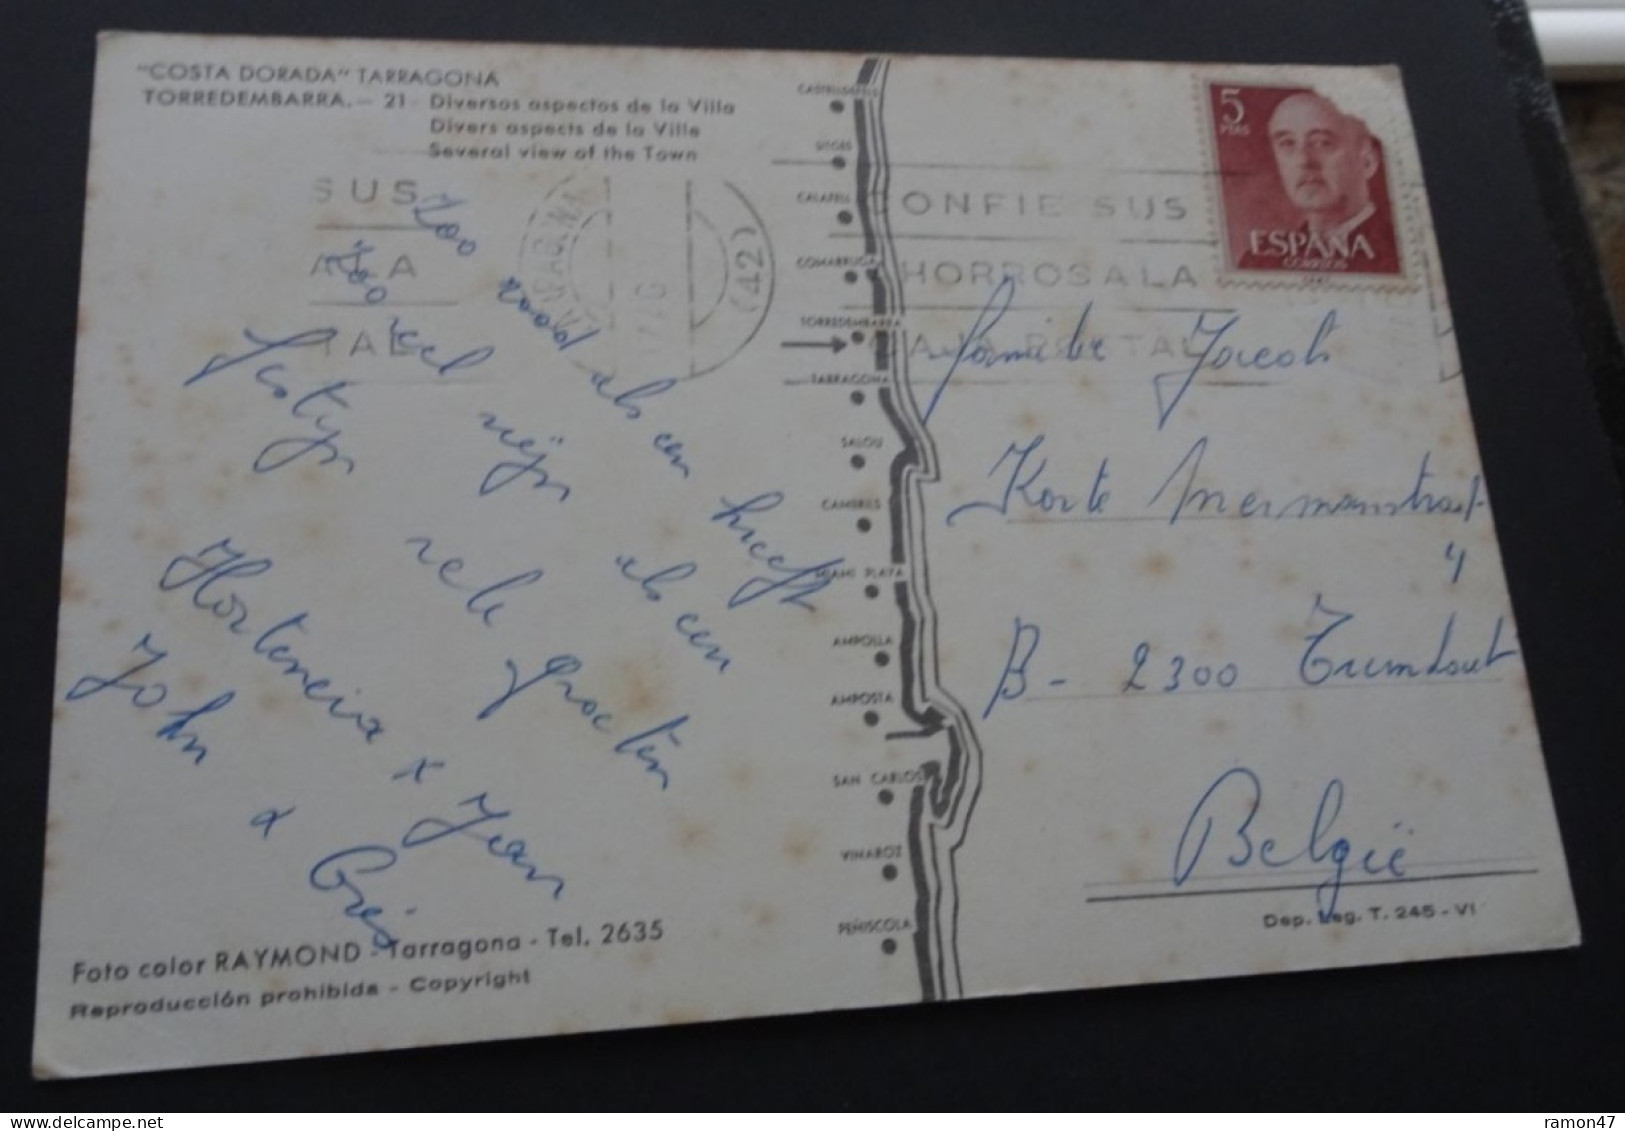 "COSTA DORADA" TARRAGONA
TORREDEMBARRA.— 21 Diversos aspectos de la Villa
Divers aspects de la Ville
Several view of the Town
SUS
TAL
(42)
CASTELLDEFELS
SITGES
CALAFELL
COMARRUGA
TORREDEMBARRA
TARRAGONA
SALOU
CAMBRILS
MIAMI PLAYA
AMPOLLA
AMPOSTA
SAN CARLOS
VINAROZ
PEÑISCOLA
CONFIE SUS
AHORROS A LA
CAJA POSTAL
5
PTAS
ESPAÑA
CORREOS
Zoo rood als een kreeft
Zoo veel als een
zijn
vele groeten
Hortensia + Jean
John + Cris
Familie Jacobs
Korte
4
B - 2300 Turnhout
België
Foto color RAYMOND - Tarragona - Tel. 2635
Reproducción prohibida - Copyright
Dep. Leg. T. 245 - VI
ramon47